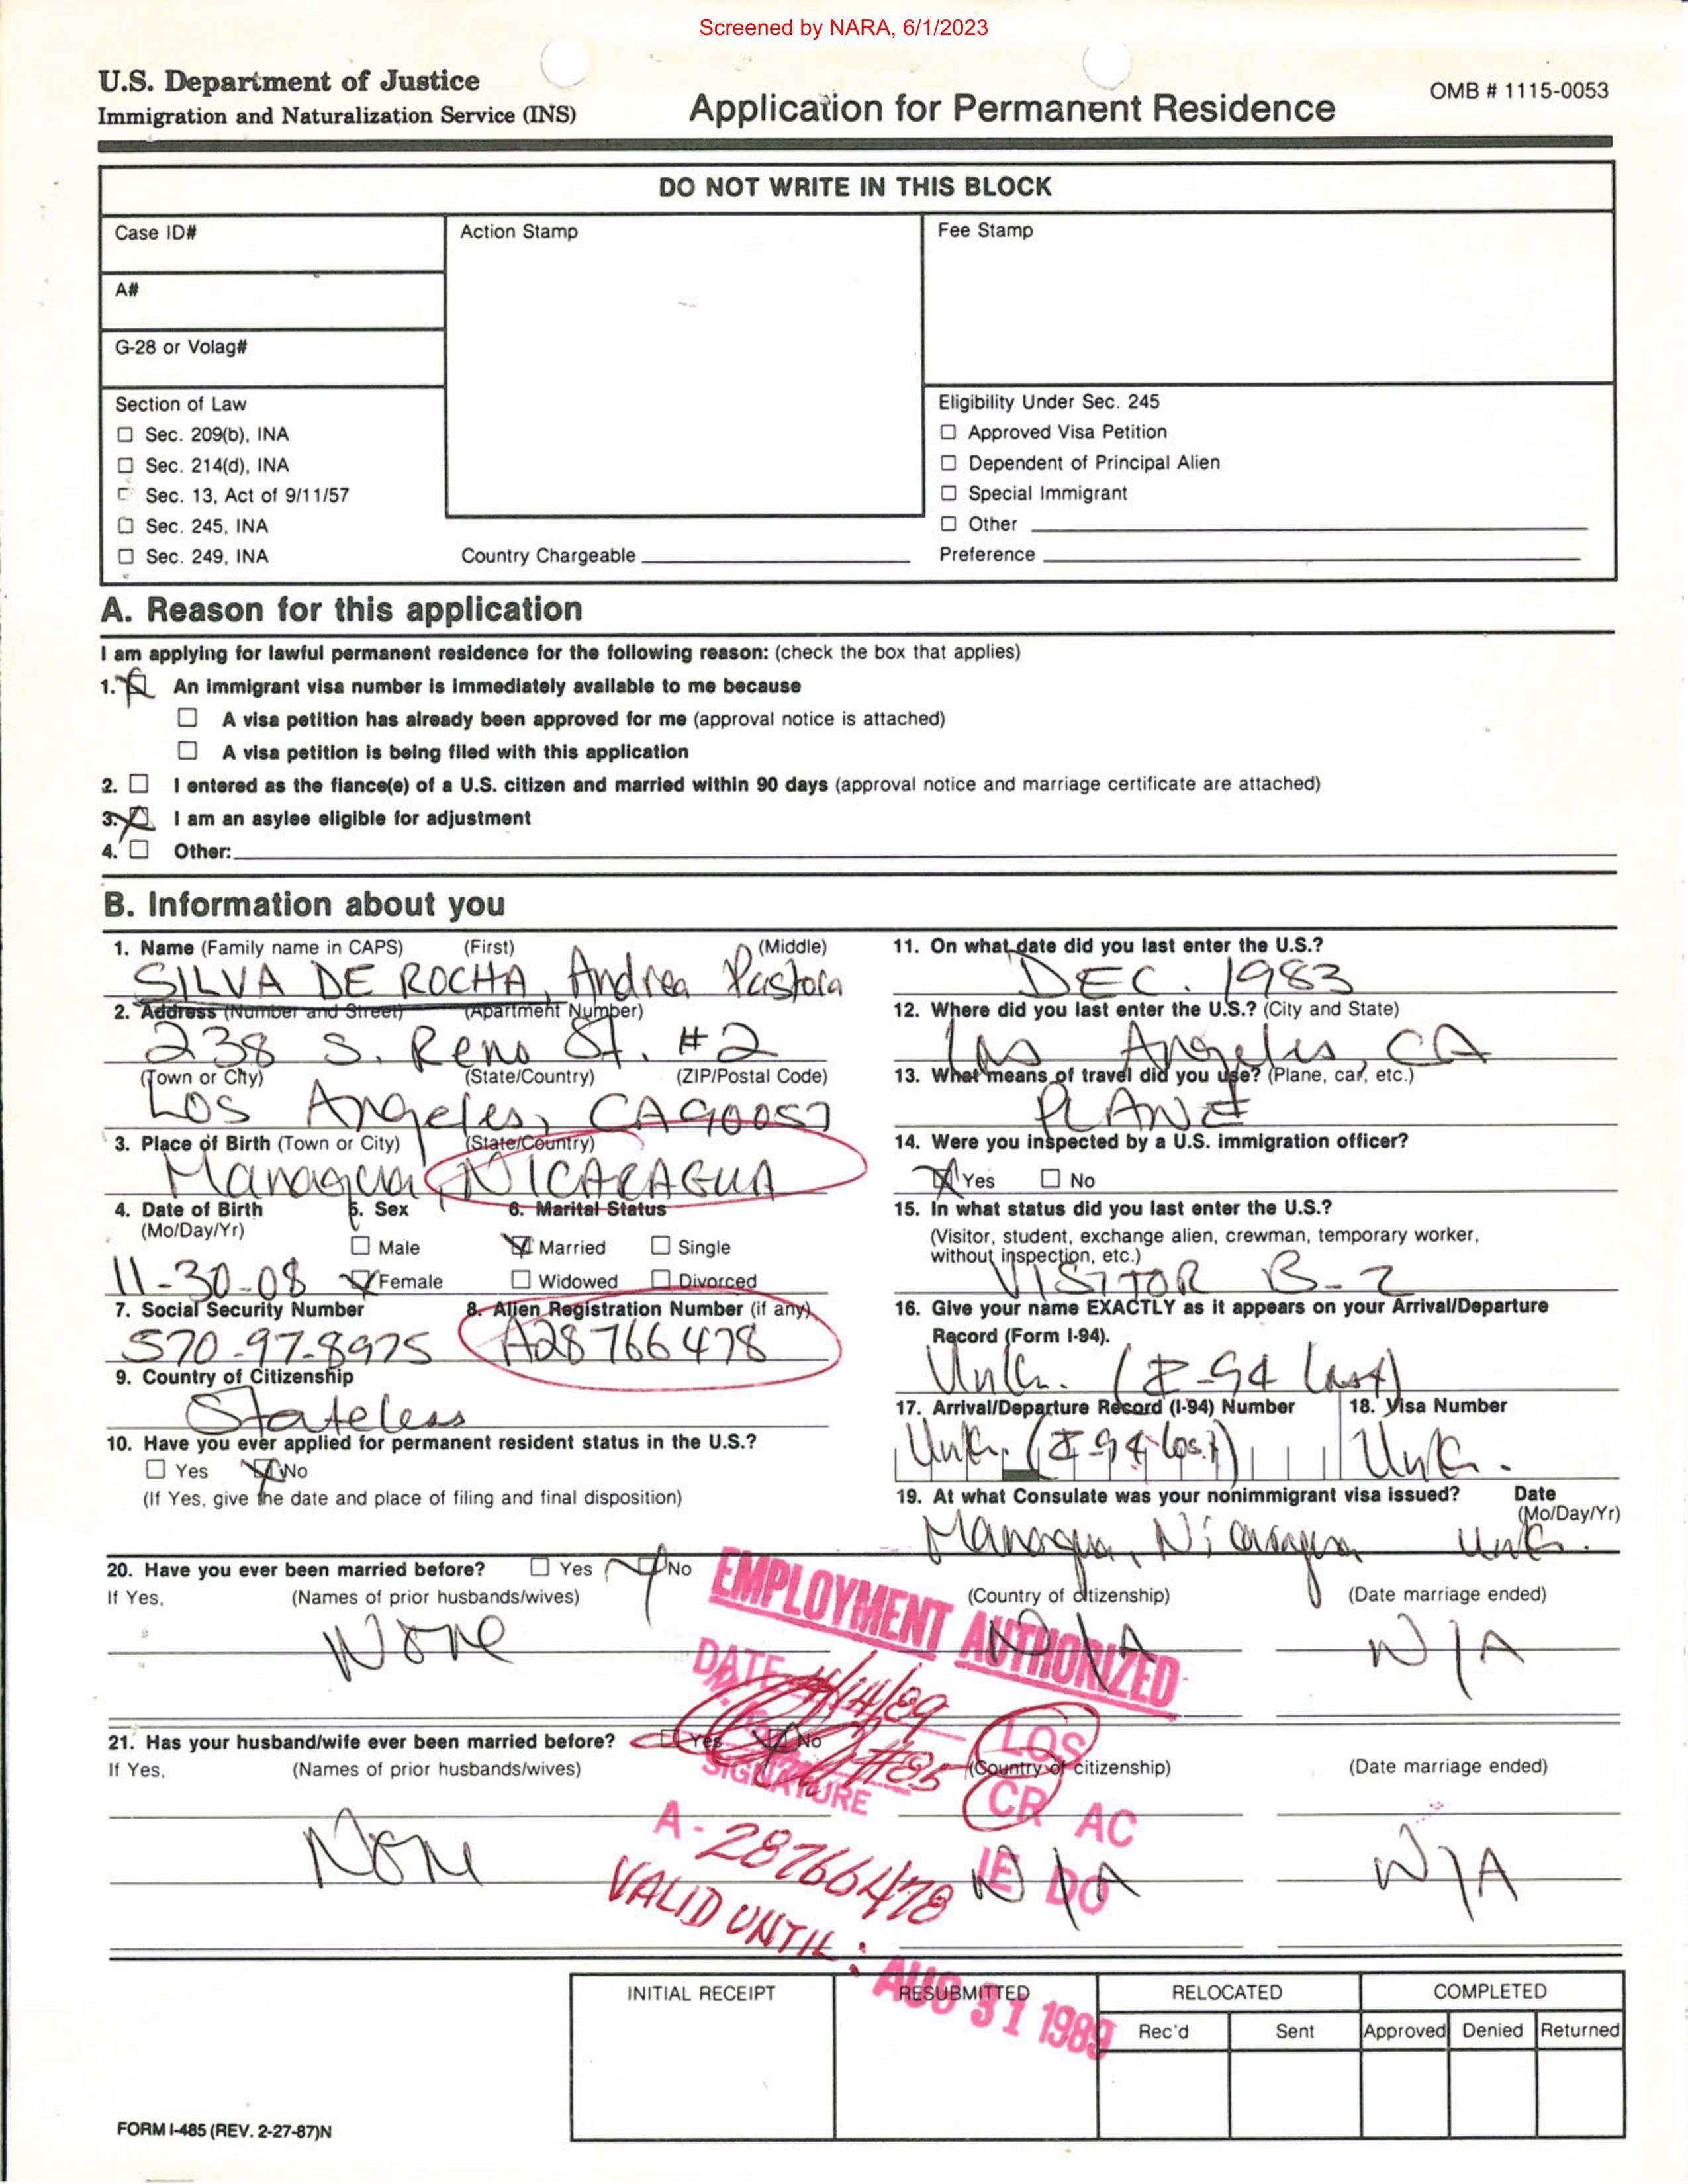 Screened by NARA, 6/1/2023
U.S. Department of Justice
Immigration and Naturalization Service (INS)
Application for Permanent Residence
OMB # 1115-0053
DO NOT WRITE IN THIS BLOCK
Case ID#
Action Stamp
Fee Stamp
A#
G-28 or Volag#
Section of Law
Sec. 209(b), INA
Sec. 214(d), INA
Sec. 13, Act of 9/11/57
Sec. 245, INA
Sec. 249, INA
Country Chargeable
Eligibility Under Sec. 245
Approved Visa Petition
Dependent of Principal Alien
Special Immigrant
Other
Preference
A. Reason for this application
I am applying for lawful permanent residence for the following reason: (check the box that applies)
1. An immigrant visa number is immediately available to me because
A visa petition has already been approved for me (approval notice is attached)
A visa petition is being filed with this application
2. I entered as the fiance(e) of a U.S. citizen and married within 90 days (approval notice and marriage certificate are attached)
3. I am an asylee eligible for adjustment
4. Other:
B. Information about you
1. Name (Family name in CAPS) (First) (Middle)
SILVA DE ROCHA, Andrea Pastora
2. Address (Number and Street) (Apartment Number)
238 S. Reno St. #2
(Town or City) (State/Country) (ZIP/Postal Code)
Los Angeles, CA 90057
3. Place of Birth (Town or City) (State/Country)
Managua, NICARAGUA
4. Date of Birth 5. Sex 6. Marital Status
(Mo/Day/Yr)
Male Married Single
11-30-08 Female Widowed Divorced
7. Social Security Number 8. Alien Registration Number (if any)
570-97-8975 A28766478
9. Country of Citizenship
Stateless
10. Have you ever applied for permanent resident status in the U.S.?
Yes No
(If Yes, give the date and place of filing and final disposition)
11. On what date did you last enter the U.S.?
DEC. 1983
12. Where did you last enter the U.S.? (City and State)
Los Angeles, CA
13. What means of travel did you use? (Plane, car, etc.)
PLANE
14. Were you inspected by a U.S. immigration officer?
Yes No
15. In what status did you last enter the U.S.?
(Visitor, student, exchange alien, crewman, temporary worker,
without inspection, etc.)
VISITOR B-2
16. Give your name EXACTLY as it appears on your Arrival/Departure
Record (Form I-94).
Unk. (I-94 lost)
17. Arrival/Departure Record (I-94) Number 18. Visa Number
Unk. (I-94 lost) Unk.
19. At what Consulate was your nonimmigrant visa issued? Date
(Mo/Day/Yr)
Managua, Nicaragua Unk.
20. Have you ever been married before? Yes No
If Yes, (Names of prior husbands/wives) (Country of citizenship) (Date marriage ended)
None N/A N/A
EMPLOYMENT AUTHORIZED
DATE
SIGNATURE
#85
LOS
CR AC
IE DO
21. Has your husband/wife ever been married before? Yes No
If Yes, (Names of prior husbands/wives) (Country of citizenship) (Date marriage ended)
None N/A N/A
A-28766478
VALID UNTIL:
AUG 31 1989
INITIAL RECEIPT
RESUBMITTED
RELOCATED
COMPLETED
Rec'd Sent Approved Denied Returned
FORM I-485 (REV. 2-27-87)N